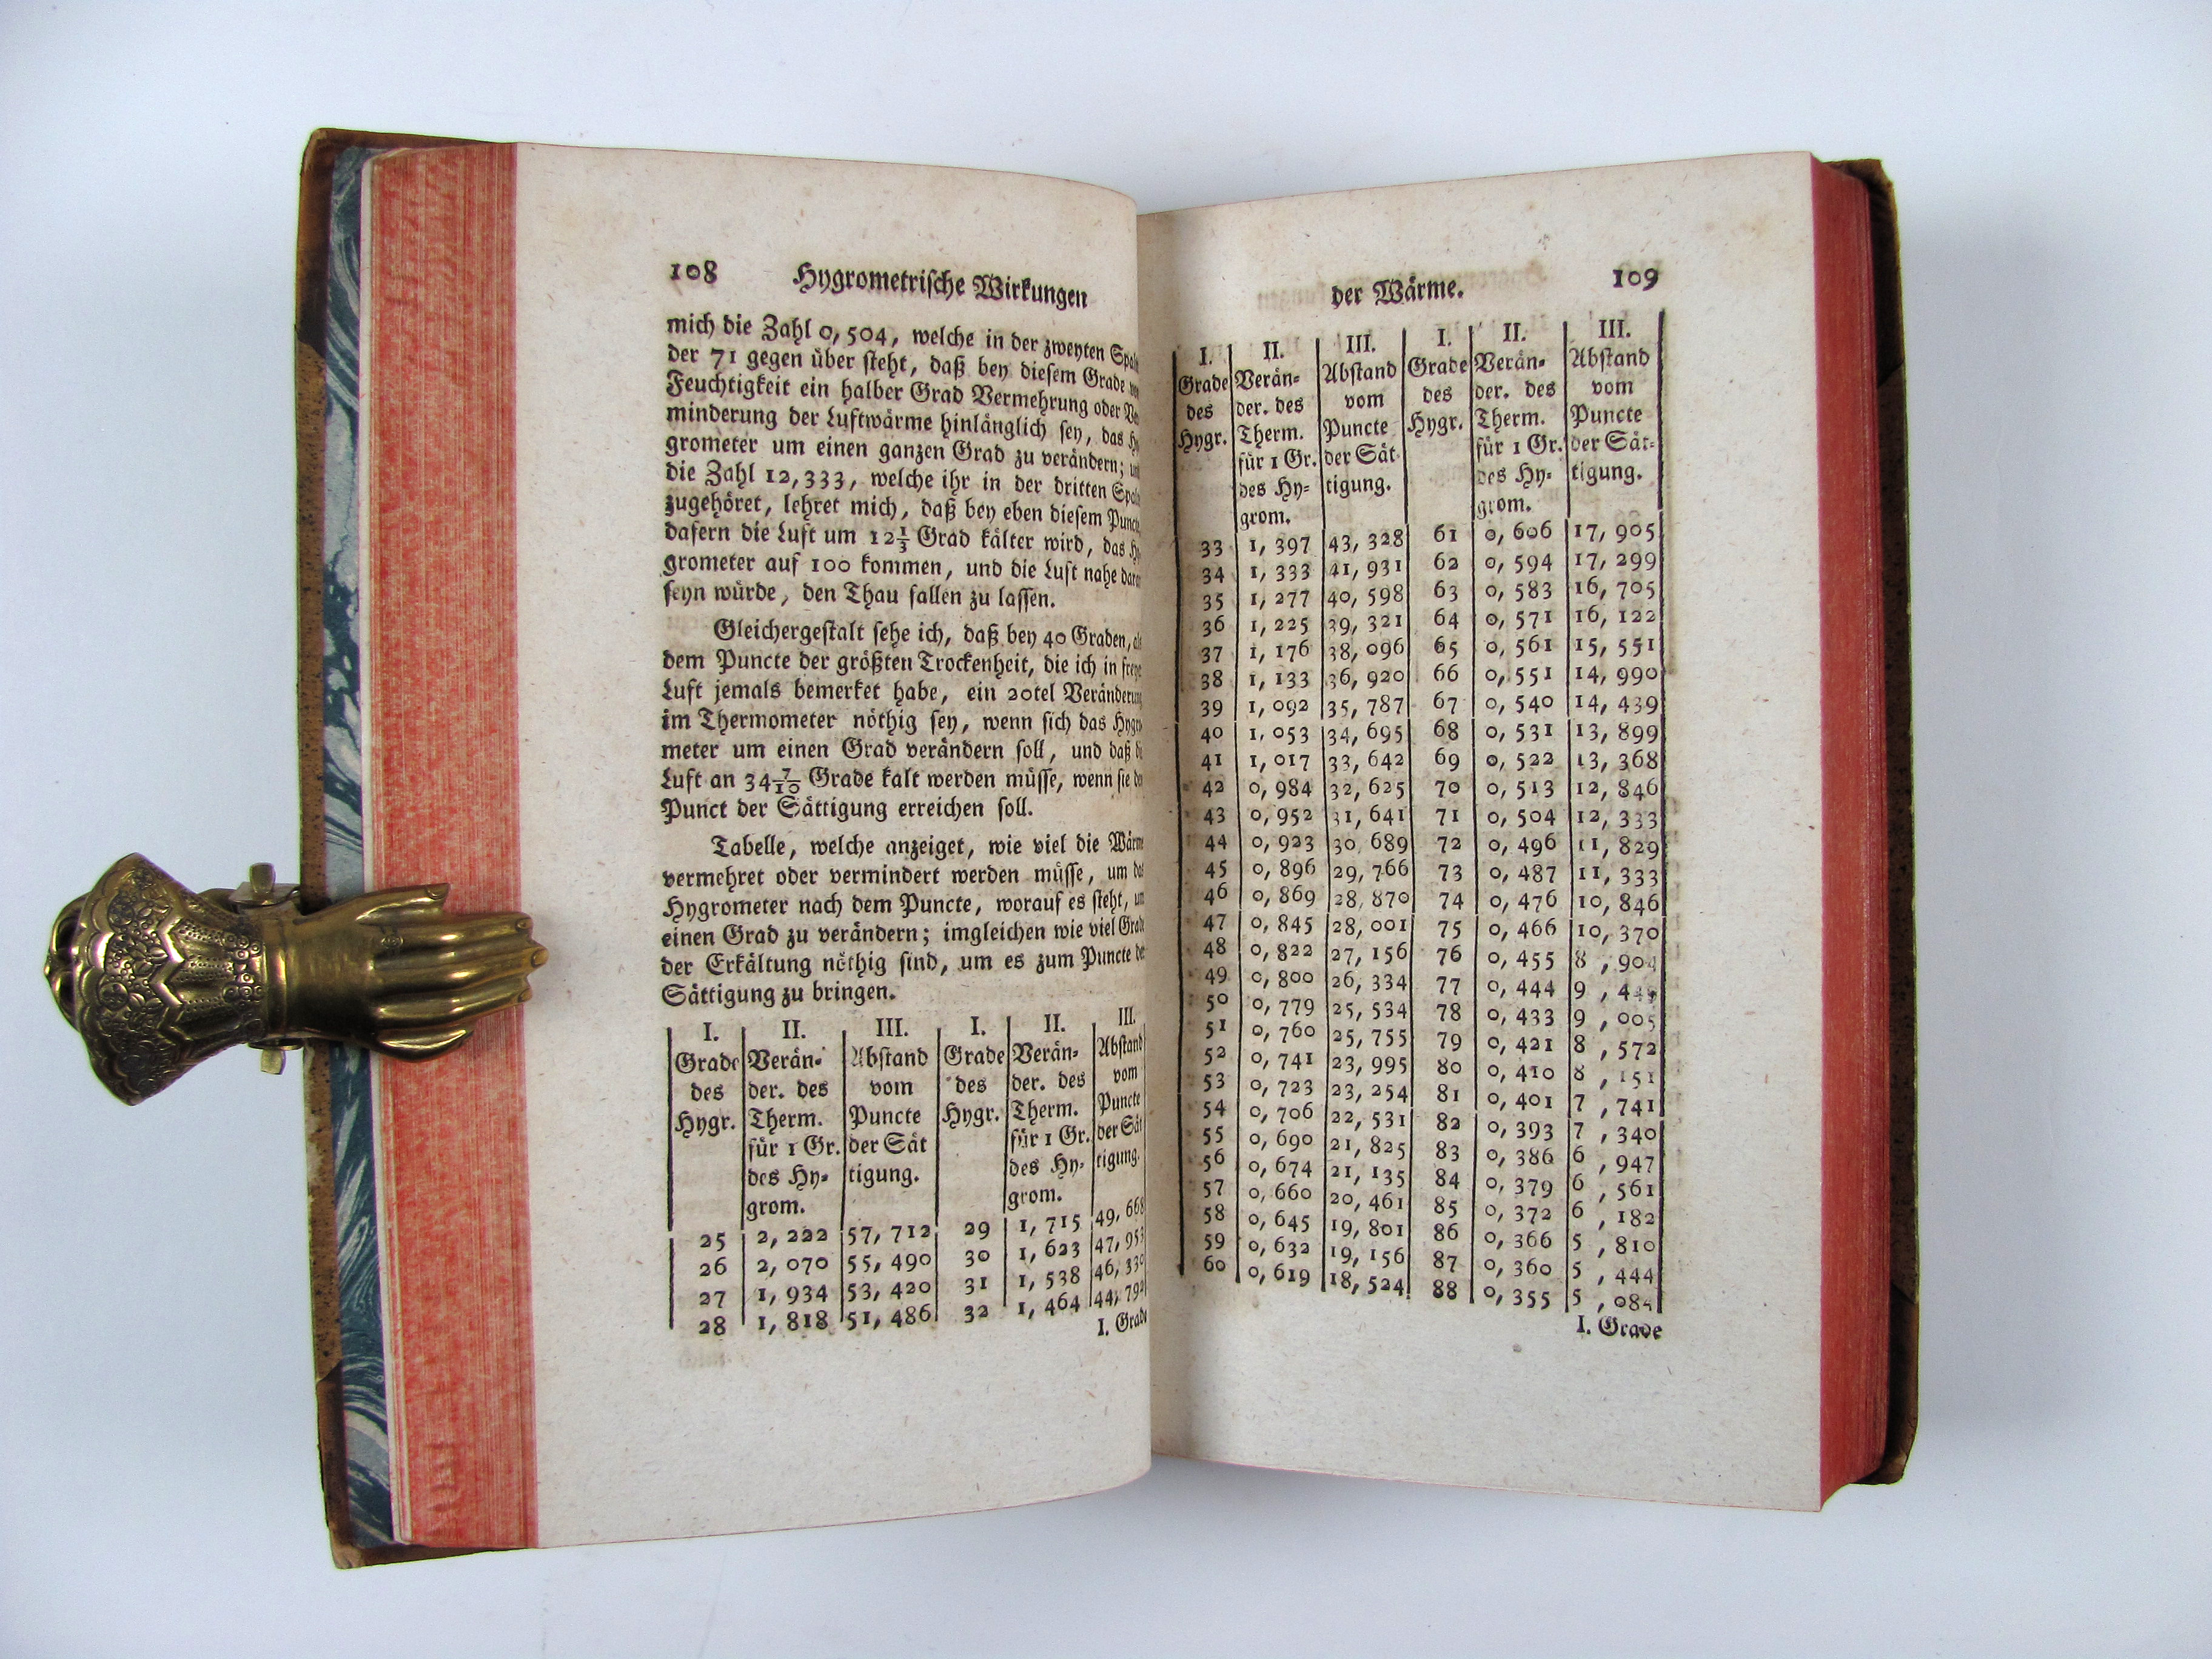 108 Hygrometrische Wirkungen
mich die Zahl 0, 504, welche in der zweyten
der 71 gegen über steht, daß bey diesem Grade
Feuchtigkeit ein halber Grad Vermehrung oder
minderung der Luftwärme hinlänglich sey, das
grometer um einen ganzen Grad zu verändern;
die Zahl 12, 333, welche ihr in der dritten
zugehöret, lehret mich, daß bey eben diesem
dafern die Luft um 12⅓ Grad kälter wird, das
grometer auf 100 kommen, und die Luft nahe
seyn würde, den Thau fallen zu lassen.
Gleichergestalt sehe ich, daß bey 40 Graden,
dem Puncte der größten Trockenheit, die ich in
Luft jemals bemerket habe, ein 20tel
im Thermometer nöthig sey, wenn sich das
meter um einen Grad verändern soll, und daß
Luft an 34 7/10 Grade kalt werden müsse, wenn sie
Punct der Sättigung erreichen soll.
Tabelle, welche anzeiget, wie viel die
vermehret oder vermindert werden müsse, um
Hygrometer nach dem Puncte, worauf es steht,
einen Grad zu verändern; imgleichen wie viel
der Erkältung nöthig sind, um es zum Puncte
Sättigung zu bringen.
I. II. III. I. II. III.
Grade Verän- Abstand Grade Verän- Abstand
des der. des vom des der. des vom
Hygr. Therm. Puncte Hygr. Therm. Puncte
für 1 Gr. der Sät für 1 Gr. der Sät
des Hy- tigung. des Hy- tigung.
grom. grom.
25 2, 222 57, 712 29 1, 715 49, 668
26 2, 070 55, 490 30 1, 623 47, 953
27 1, 934 53, 420 31 1, 538 46, 330
28 1, 818 51, 486 32 1, 464 44, 792
I. Grade
der Wärme. 109
I. II. III. I. II. III.
Grade Verän- Abstand Grade Verän- Abstand
des der. des vom des der. des vom
Hygr. Therm. Puncte Hygr. Therm. Puncte
für 1 Gr. der Sät für 1 Gr. der Sät-
des Hy- tigung. des Hy- tigung.
grom. grom.
33 1, 397 43, 328 61 0, 606 17, 905
34 1, 333 41, 931 62 0, 594 17, 299
35 1, 277 40, 598 63 0, 583 16, 705
36 1, 225 39, 321 64 0, 571 16, 122
37 1, 176 38, 096 65 0, 561 15, 551
38 1, 133 36, 920 66 0, 551 14, 990
39 1, 092 35, 787 67 0, 540 14, 439
40 1, 053 34, 695 68 0, 531 13, 899
41 1, 017 33, 642 69 0, 522 13, 368
42 0, 984 32, 625 70 0, 513 12, 846
43 0, 952 31, 641 71 0, 504 12, 333
44 0, 923 30, 689 72 0, 496 11, 829
45 0, 896 29, 766 73 0, 487 11, 333
46 0, 869 28, 870 74 0, 476 10, 846
47 0, 845 28, 001 75 0, 466 10, 370
48 0, 822 27, 156 76 0, 455 8 , 904
49 0, 800 26, 334 77 0, 444 9 , 449
50 0, 779 25, 534 78 0, 433 9 , 005
51 0, 760 25, 755 79 0, 421 8 , 572
52 0, 741 23, 995 80 0, 410 8 , 151
53 0, 723 23, 254 81 0, 401 7 , 741
54 0, 706 22, 531 82 0, 393 7 , 340
55 0, 690 21, 825 83 0, 386 6 , 947
56 0, 674 21, 135 84 0, 379 6 , 561
57 0, 660 20, 461 85 0, 372 6 , 182
58 0, 645 19, 801 86 0, 366 5 , 810
59 0, 632 19, 156 87 0, 360 5 , 444
60 0, 619 18, 524 88 0, 355 5 , 084
I. Grade